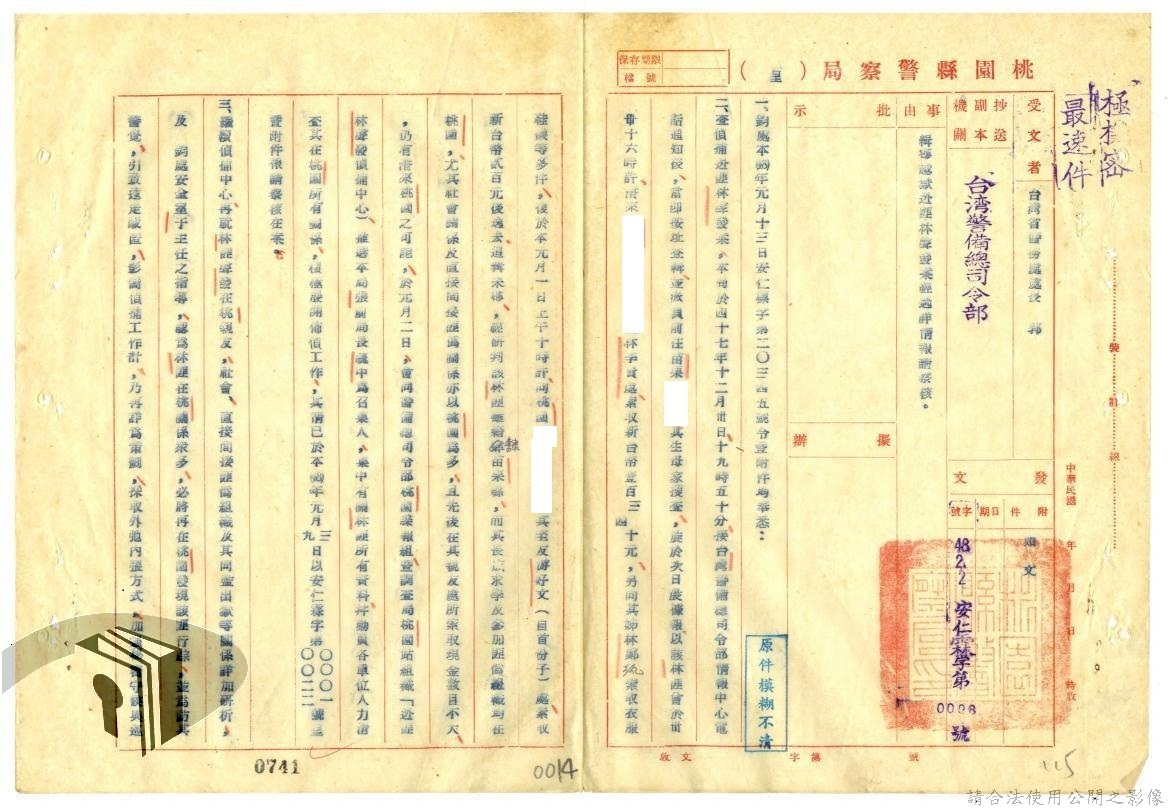 極機密
最速件
桃園縣警察局（呈）
保存期限
檔號
受文者
台灣省警務處處長 郭
抄送副本機關
台湾警備總司令部
事由
緝導逃獄近匪林希發案經過詳情報請察核。
批示
擬辦
發文
附件
日期
字號
如文
48.2.2
安仁霖字第0096號
中華民國 年 月 日 時收
裝訂線
一、鈞處本48年元月十三日安仁碟字第二〇三四五號令暨附件均奉悉：
二、查偵捕近匪林 發案，本局於四十七年十二月卅日十九時五十分接台灣警備總司令部情報中心電
話通知後，當即按址查輯，並派員前往苗栗 其生母家搜查，旋於次日晨據報以該林匪曾於卅
卅十六時許潛來 林李 處索取新台幣壹百三四十元，另向其姊林鄭 索取衣服
棉襪等多件，復於本元月一日上午十時許向桃園 其至友游好文（自首份子）處索取
新台幣貳百元後逃去追輯未獲，經研判該林匪雖籍隸苗栗縣，而其長 求學及參加匪偽組織均在
桃園，尤其社會關係及直接間接匪偽關係亦以桃園為多，且先後在其親友處所索取現金數目不大
，仍有潛來桃園之可能，於元月二日，會同警備總司令部桃園諜報組暨調查局桃園站組織「近匪
林 發偵捕中心」推選本局張副局長毓中為召集人，集中有關林匪所有資料并動員各單位人力清
查其在桃園所有關係，積極展開佈偵工作，其情已於本48年元月三九日以安仁霖字第〇〇〇一〇〇二二號呈
暨附件報請察核在案。
三、 偵捕中心再就林匪 發在桃親友，社會，直接間接匪偽組織及其同監出獄等關係詳加研析，
及 鈞處安全室于主任之指導，認為林匪在桃園關係眾多，必將再在桃園發現該匪行踪，並為防其
警覺，引致遠走敗匿，影響偵捕工作計，乃再詳為策劃，採取外弛內張方式，加
原件模糊不清
收文 字第 號
0741
0014
115
請合法使用公開之影像